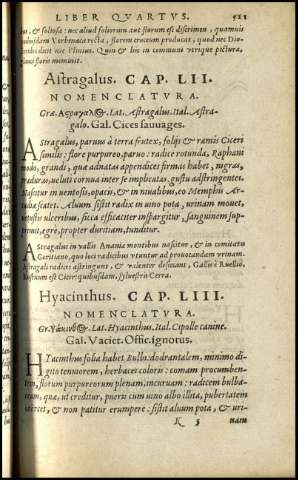 LIBER QUARTUS. 521
sus, & foliosa: nec aliud foliorum aut florum est discrimen, quamuis
quibusdam Verbenaca recta, florem croceum producit, quod nec Dio-
nec Plinius. Quin & hic in communi vtrique pictura,
floris meminit.
Astragalus. CAP. LII.
NOMENCLATURA.
Græ. Αςραγαλος. Lat. Astragalus. Ital. Astra-
galo. Gal. Cices sauuages.
Astragalus, paruus à terra frutex, folijs & ramis Ciceri
similis: flore purpureo, paruo: radice rotunda, Raphani
modo, grandi, quæ adnatas appendices firmas habet, nigras,
duras, ut cornua inter se implicatas, gustu adstringentes.
Nascitur in uentosis, opacis, & in niualibus, eo Memphi Ar-
scatet. Aluum sistit radix in uino pota, urinam mouet,
uetustis ulceribus, sicca efficaciter inspargitur, sanguinem sup-
primit, ægrè, propter duritiam, tunditur.
Astragalus in vallis Anania montibus nascitur, & in comitatu
Goritiano, quo loci radicibus vtuntur ad prouocandam vrinam.
Astragali radices astringunt, & valenter desiccant, Galli è Ruellio,
est Cicer quibusdam, syluestris Cerra.
Hyacinthus. CAP. LIII.
NOMENCLATURA.
Gr. Υακινθος. Lat. Hyacinthus. Ital. Cipolle canine.
Gal. Vaciet. Offic. ignotus.
HYacinthus folia habet Bulbi: dodrantalem, minimo di-
gito tenuorem, herbacei coloris: comam procumben-
tem, florum purpureorum plenam, incuruam: radicem bulba-
ceam, quæ, ut creditur, pueris cum uino albo illita, pubertatem
coercet, & non patitur erumpere: sistit aluum pota, & uri-
K 5 nam